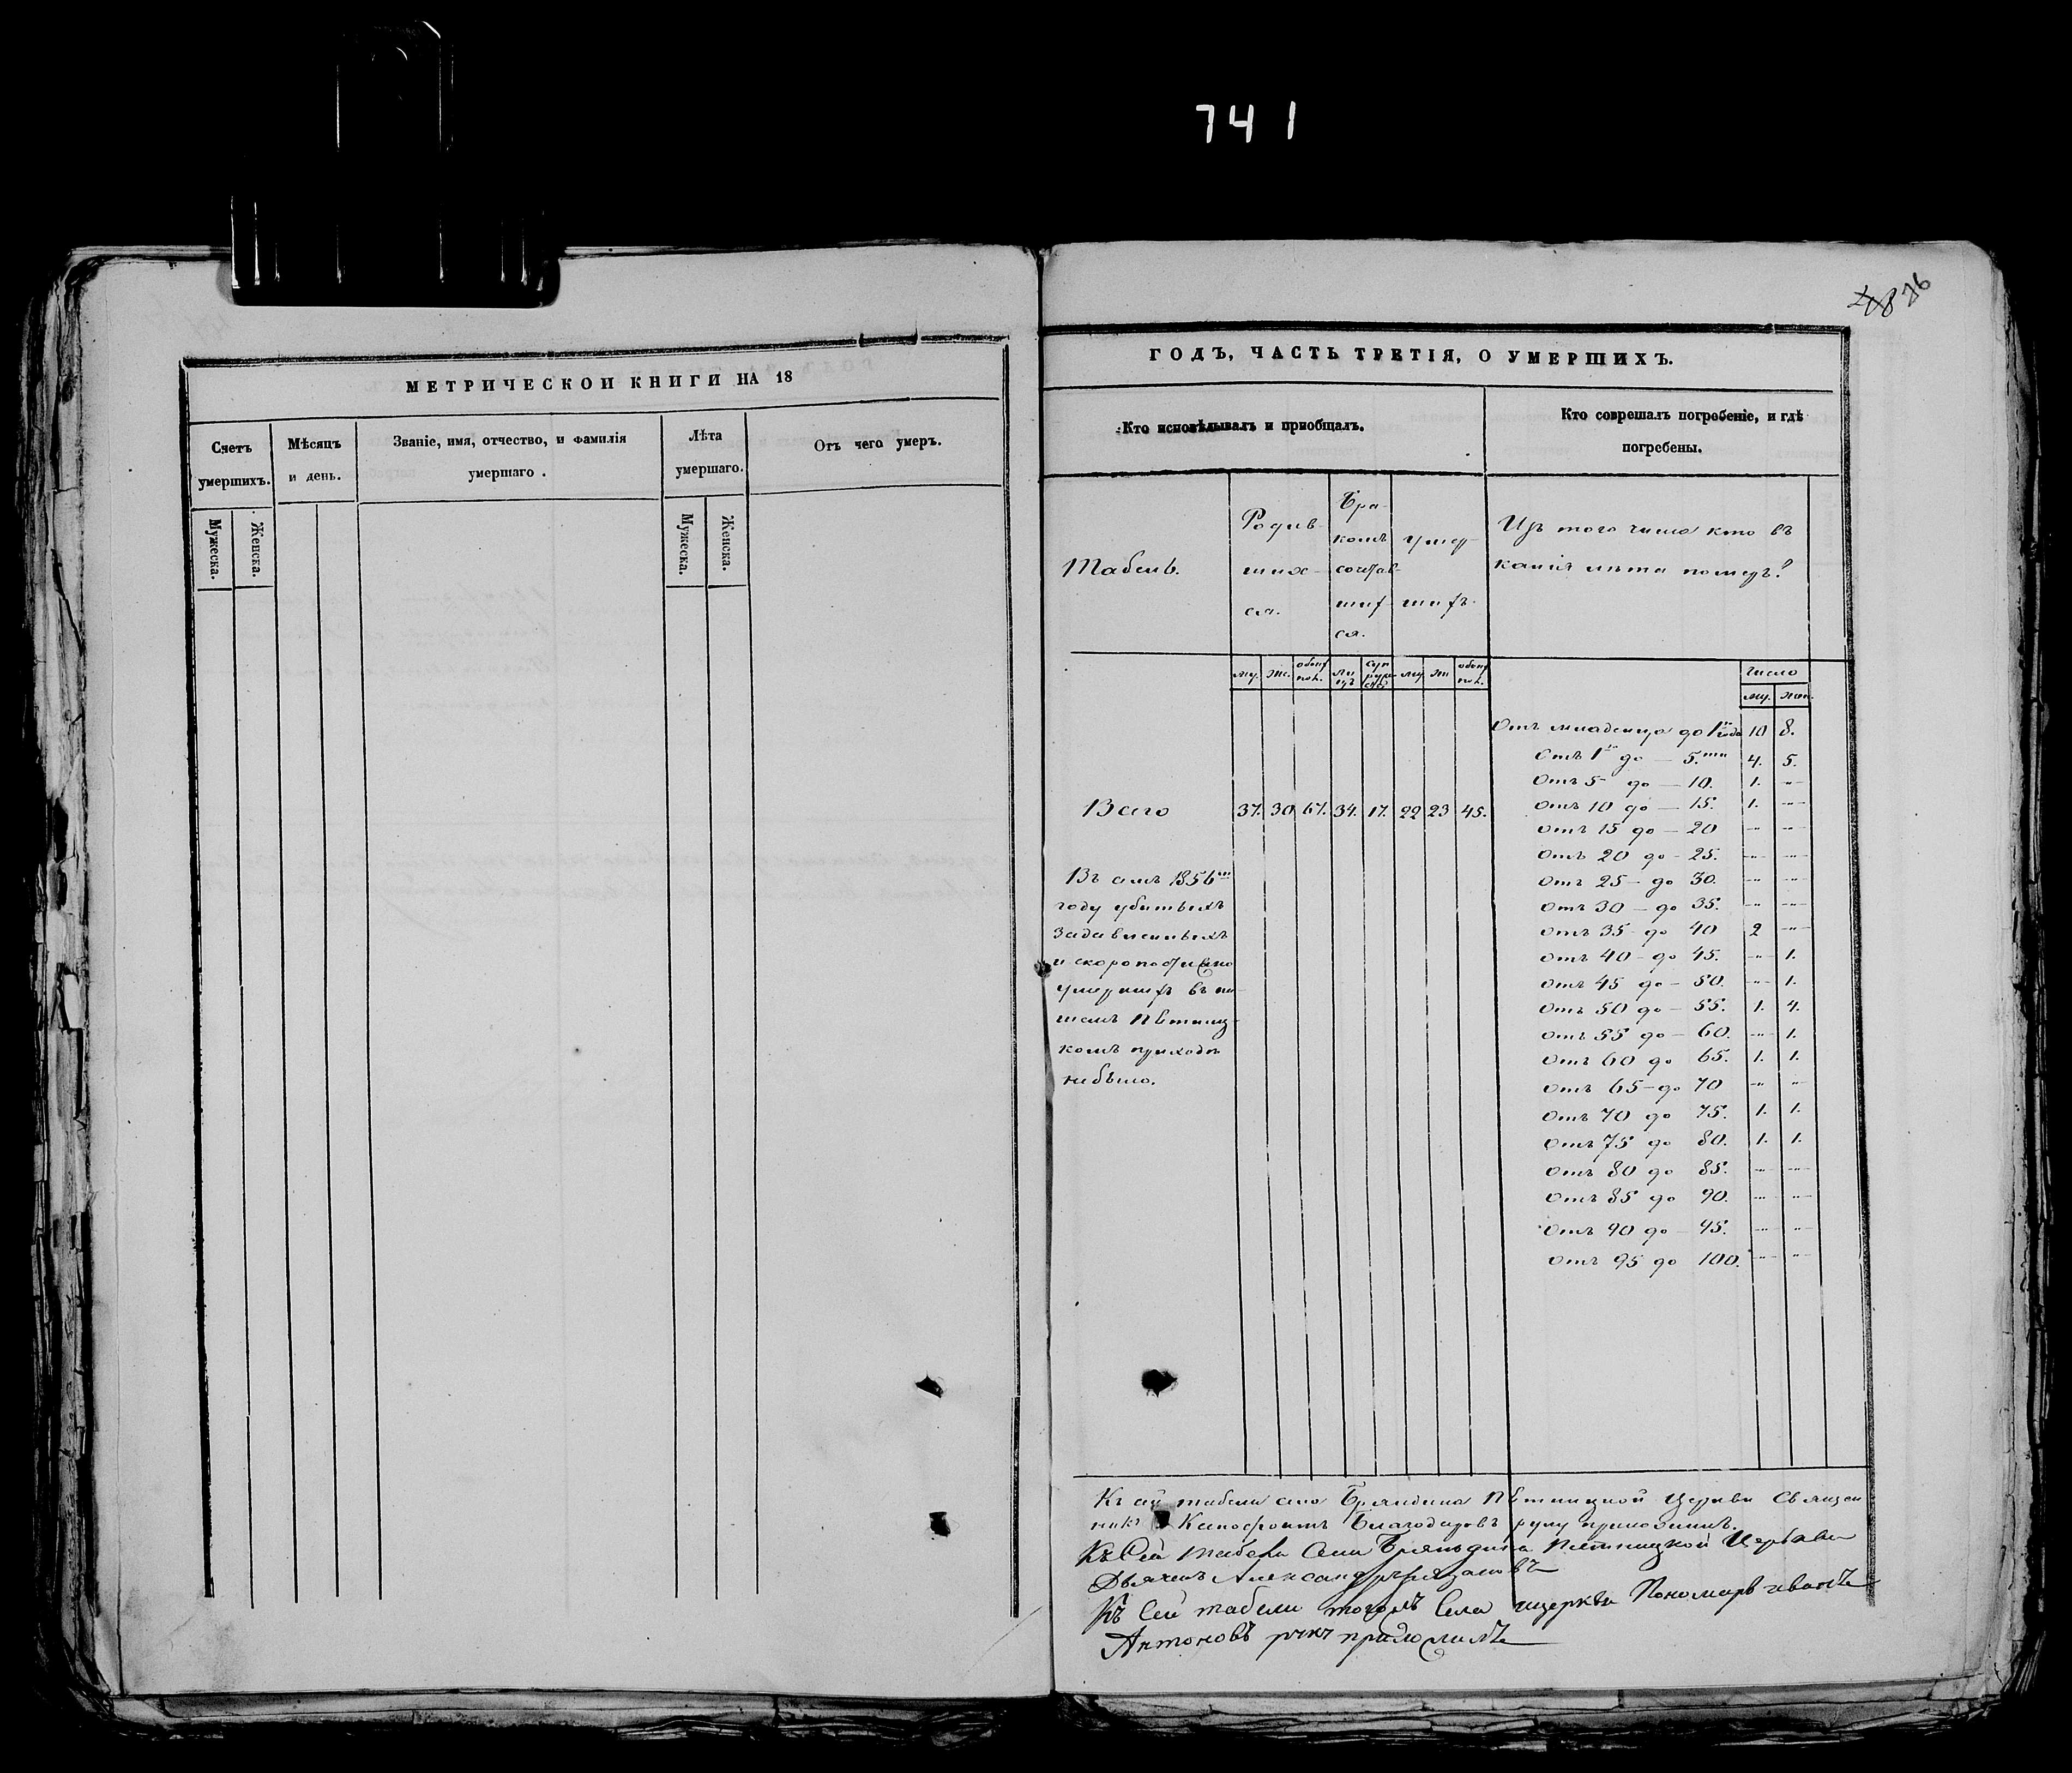 741
76
МЕТРИЧЕСКОЙ КНИГИ НА 18
Счетъ умершихъ.
Мѣсяцъ и день.
Званіе, имя, отчество, и фамилія умершаго.
Лѣта умершаго.
Отъ чего умеръ.
Мужеска.
Женска.
Мужеска.
Женска.
ГОДЪ, ЧАСТЬ ТРЕТІЯ, О УМЕРШИХЪ.
Кто исповѣдывалъ и пріобщалъ.
Кто соврешалъ погребеніе, и гдѣ
погребены.
Табель.
Родив-
ших-
ся.
Бра-
комъ
сочетав-
шиx-
ся.
умер-
шихъ.
Изъ того числа кто въ
какія лѣта померъ?
му. же. обоиx пол. ли цъ суп руже ствъ му. же обоиx пол.
число
му. жен.
Отъ младенца до 1го года 10 8.
Отъ 1го до — 5.ти 4. 5.
Отъ 5 до — 10. 1. -"-
Отъ 10 до — 15. 1. -"-
Отъ 15 до — 20 -"- -"-
Отъ 20 до - 25. -"- -"-
Отъ 25 - до 30. -"- -"-
Отъ 30 - до 35. -"- -"-
Отъ 35 - до 40 2 -"-
Отъ 40 - до 45. -"- 1.
Отъ 45 до - 50. -"- 1.
Отъ 50 до - 55. 1. 4.
Отъ 55 до - 60. -"- 1.
Отъ 60 до 65. 1. 1.
Отъ 65 - до 70 -"- -"-
Отъ 70 до 75. 1. 1.
Отъ 75 до 80. 1. 1.
Отъ 80 до 85. -"- -"-
Отъ 85 до 90. -"- -"-
Отъ 90 до - 95. -"- -"-
Отъ 95 до 100. -"- -"-
Всего 37. 30 67. 34. 17. 22 23 45.
Въ семъ 1856м
году убитыхъ
задавленныхъ
и скоропостижно
умершихъ въ на-
шемъ Пѣтниц-
комъ приходѣ
небыло.
Къ сей табели села Бряндина Пѣтницкой Церкви Священ
никъ Благодаровъ руку приложилъ.
Къ Сей Табели Села Бряньдина Пятницкой Церькви
Дьячекъ Александръ
Къ Сей табели тогожъ Села ицеркви Пономарь иванъ
Антоновъ руку приложилъ